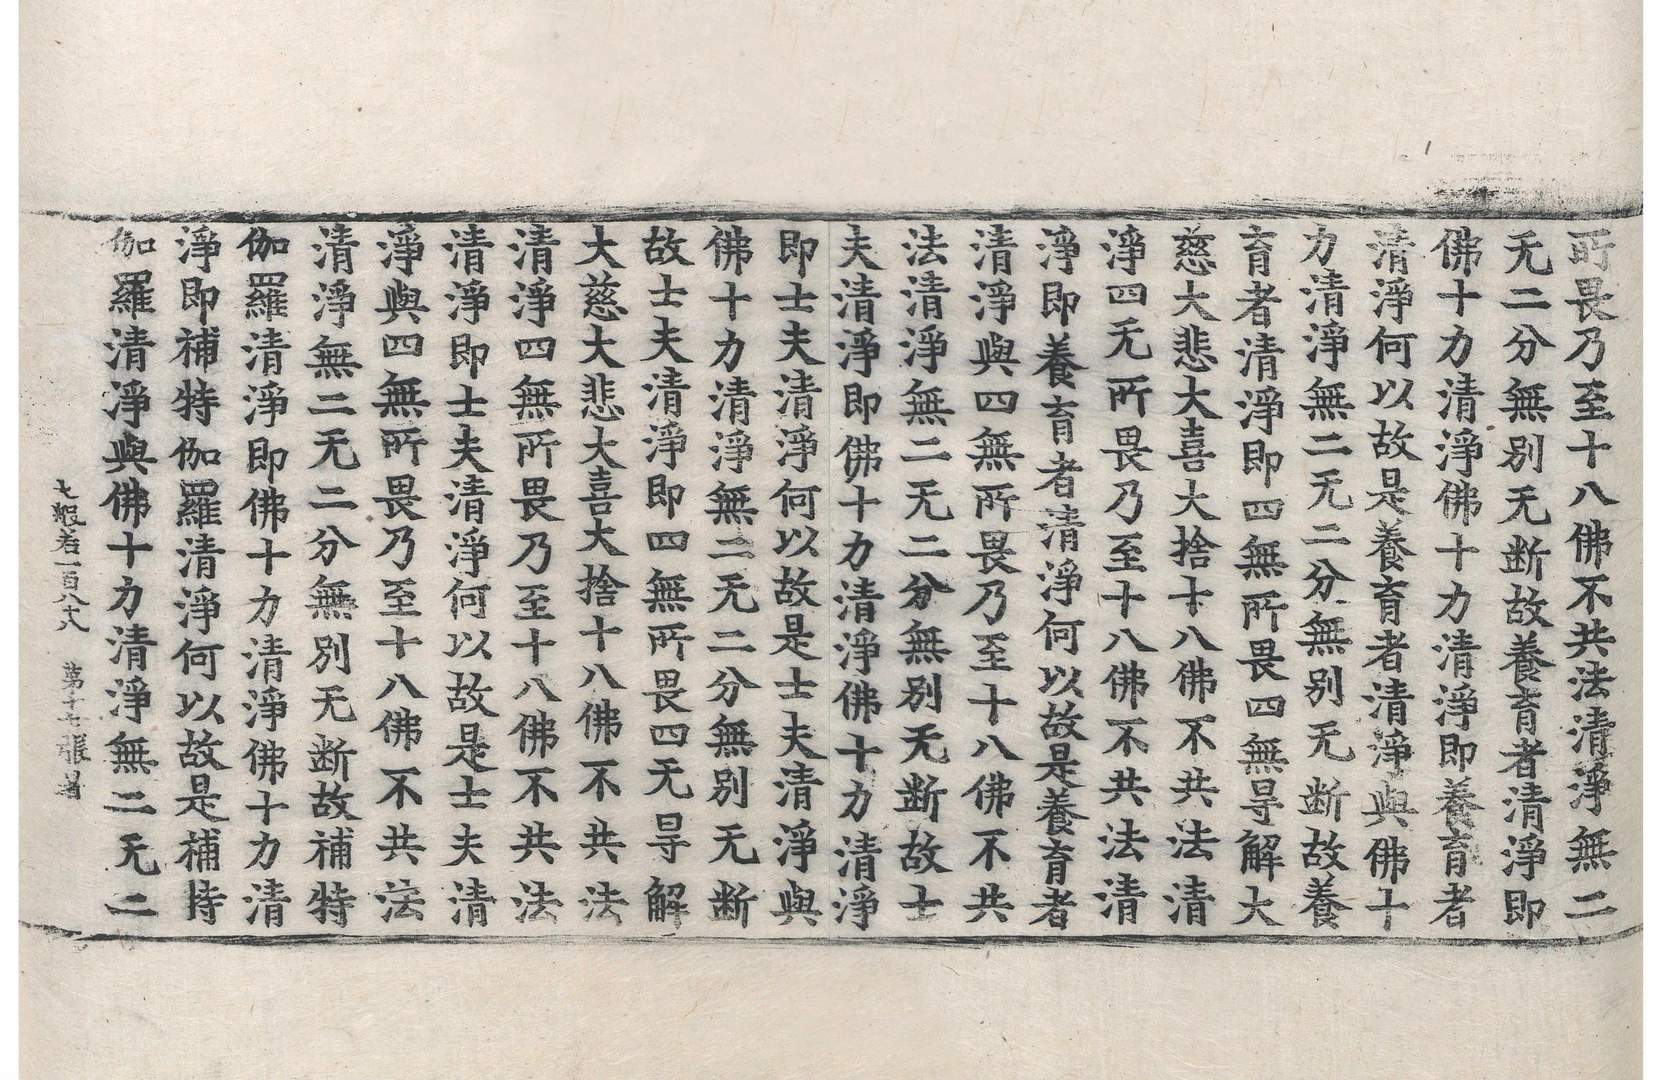 所畏乃至十八佛不共法清淨無二
无二分無別无断故養育者清淨即
佛十力清淨佛十力清淨即養育者
清淨何以故是養育者清淨與佛十
力清淨無二无二分無別无断故養
育者清淨即四無所畏四無㝵解大
慈大悲大喜大捨十八佛不共法清
淨四无所畏乃至十八佛不共法清
淨即養育者清淨何以故是養育者
清淨與四無所畏乃至十八佛不共
法清淨無二无二分無別无断故士
夫清淨即佛十力清淨佛十力清淨
即士夫清淨何以故是士夫清淨與
佛十力清淨無二无二分無別无断
故士夫清淨即四無所畏四无㝵解
大慈大悲大喜大捨十八佛不共法
清淨四無所畏乃至十八佛不共法
清淨即士夫清淨何以故是士夫清
淨與四無所畏乃至十八佛不共法
清淨無二无二分無別无断故補特
伽羅清淨即佛十力清淨佛十力清
淨即補特伽羅清淨何以故是補特
伽羅清淨與佛十力清淨無二无二
大般若一百八十八 第十七張 暑